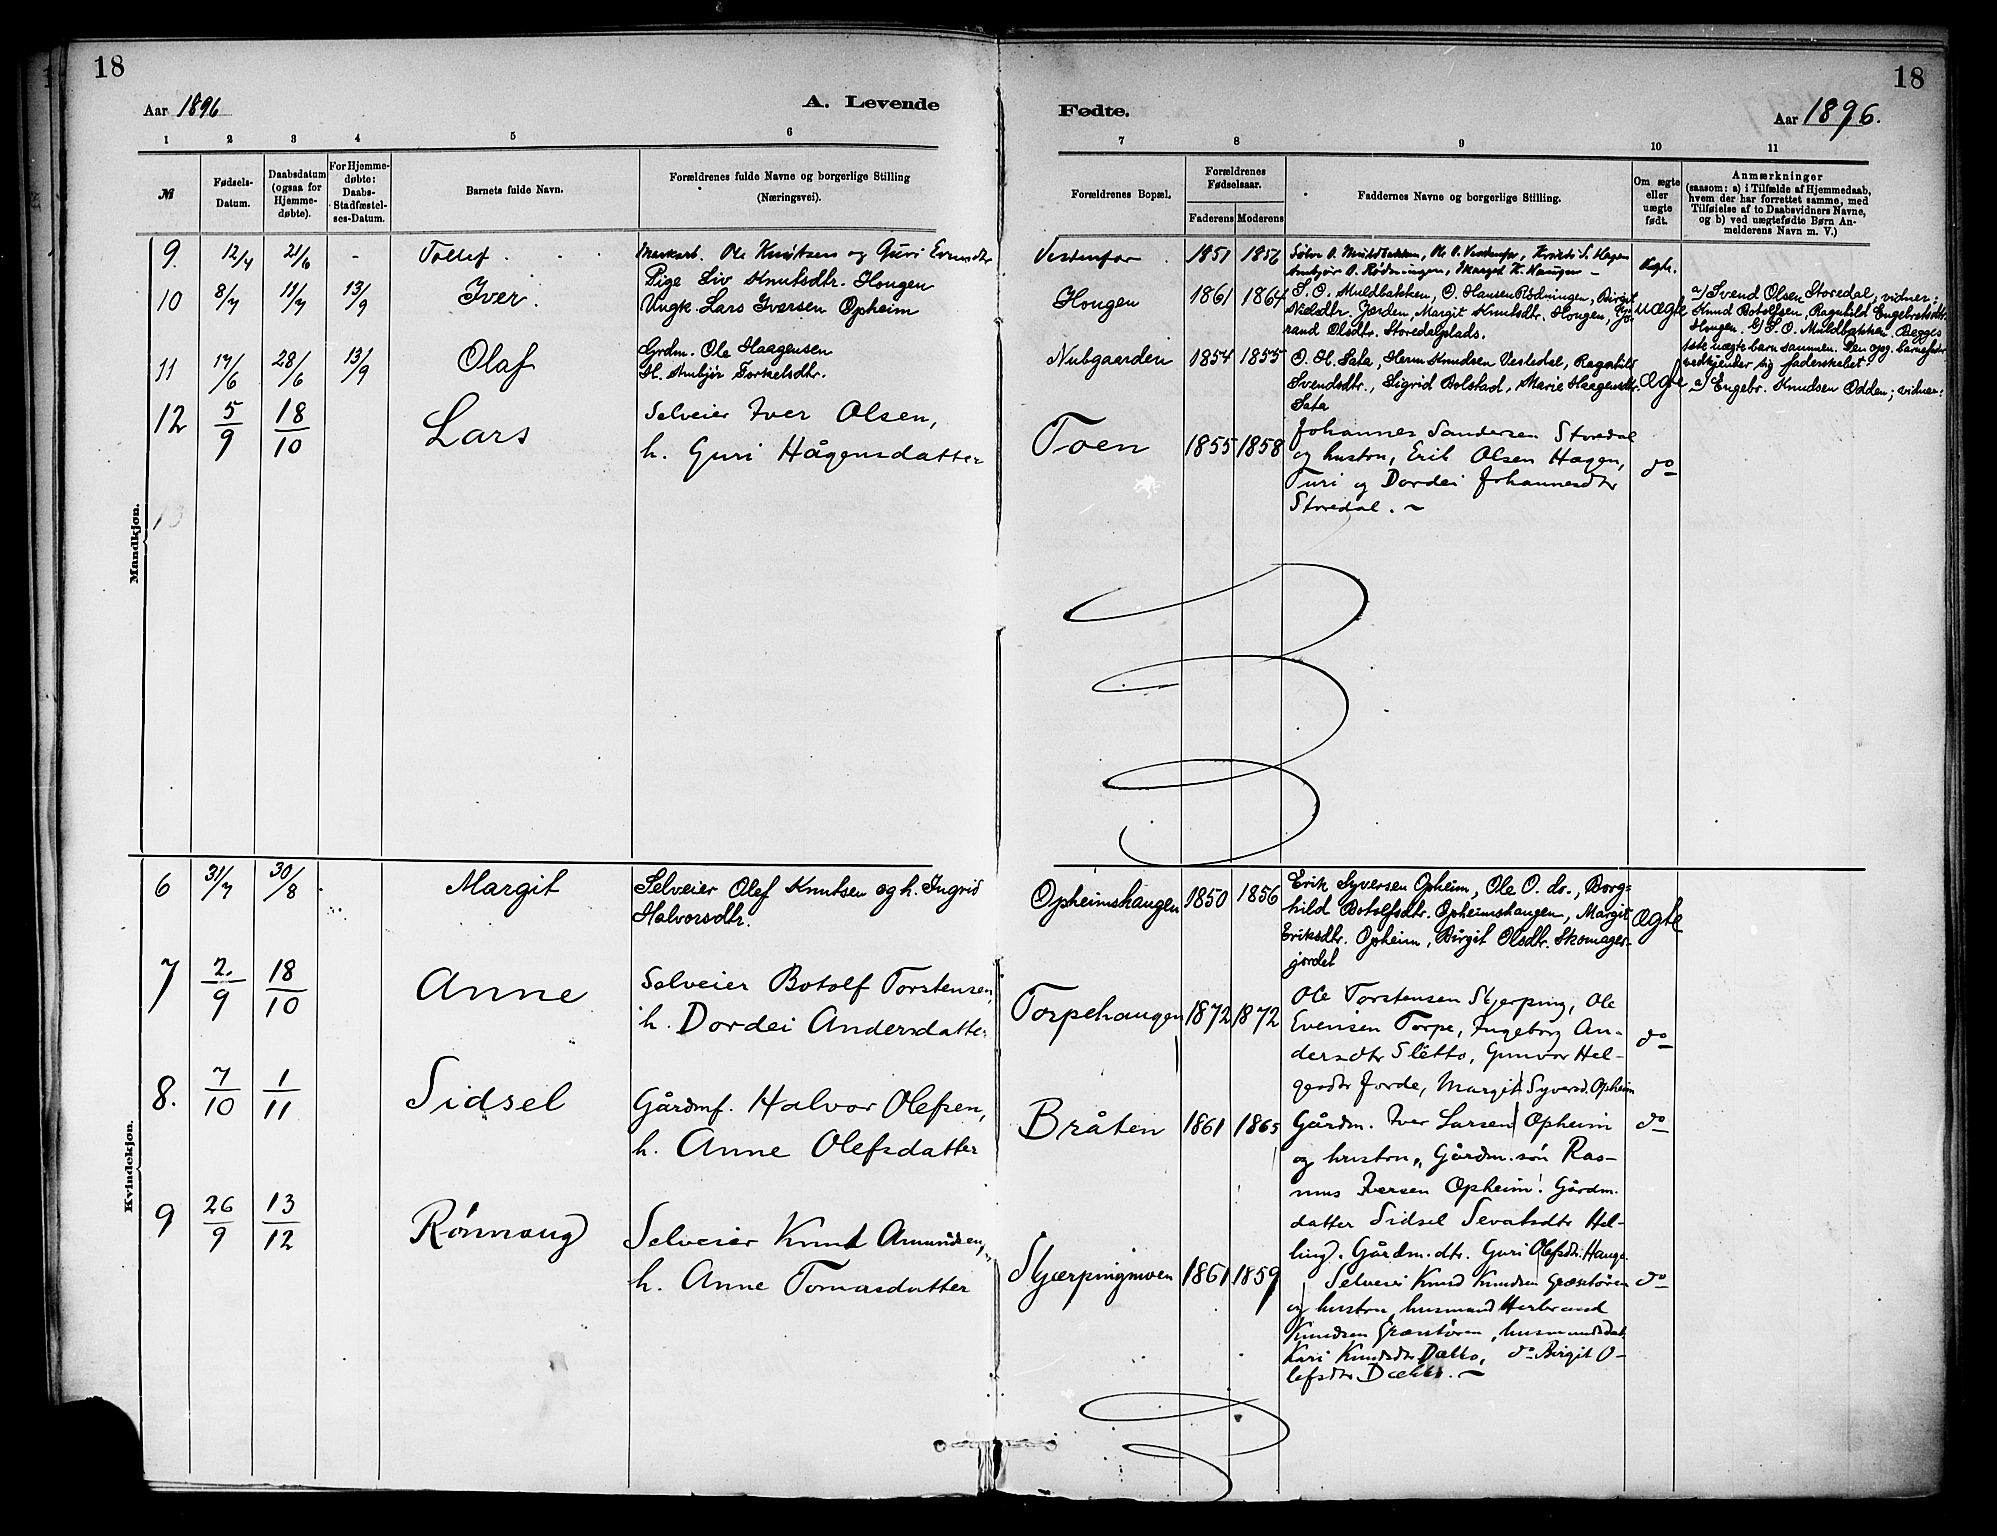 18
Aar 1896
A. Levende
1 2 3 4 5 6
№
Fødsels-Datum.
Daabsdatum (ogsaa for Hjemme-døbte).
For Hjemme-døbte: Daabs-Stadfæstel-ses-Datum.
Barnets fulde Navn.
Forældrenes fulde Navne og borgerlige Stilling
(Næringsvei).
Mandkjøn.
9. 12/4 21/6 - Tollef.
Ole Knutsen og Guri
10 8/7 11/7 13/9 Iver.
Pige Liv Knutsdtr. Hougen
Ungk. Lars Iversen Opheim
11 14/6 28/6 13/9 Olaf
Grdm. Ole Haagensen
H. Torkelsdtr.
12 5/9 18/10 Lars
Selveier Iver Olsen,
h. Guri Hågensdatter
13
Kvindekjøn.
6 31/7 30/8 Margit
Selveier Olef Knutsen og h. Ingrid
Halvorsdtr.
7 2/9 18/10 Anne
Selveier Botolf Torstensen,
h. Dordei Andersdatter
8. 7/10 1/11 Sidsel
Gårdmf. Halvor Olefsen,
h. Anne Olefsdatter
9 26/9 13/12 Rønnaug
Selveier Knut Amundsen,
h. Anne Tomasdatter
18
Fødte.
Aar 1896.
7 8 9 10 11
Forældrenes Bopæl.
Forældrenes Fødselsaar.
Faderens Moderens
Faddernes Navne og borgerlige Stilling.
Om ægte eller uægte født.
Anmærkninger
(saasom: a) i Tilfælde af Hjemmedaab,
hvem der har forrettet samme, med
Tilføielse af to Daabsvidners Navne,
og b) ved uægtefødte Børn An-
melderens Navn m. V.)
1851 1856
Hougen 1861 1864
S. O. Muldbakken, O. Hansen Rødningen, Birgit
Nielsdtr. Jorden, Margit Knutsdtr. Hougen,
rand Olsdtr. Storedalplads.
uægte
a/ Svend Olsen Storedal; vidner:
Knud Botolfsen, Ragnhild Engebretsdtr.
Hougen. b/ S. O. Muldbakken. Begges
1ste uægte barn sammen. Den opg. barnefader
vedkjender sig faderskabet.
Nubgaarden 1854 1855
O. H. Sata, Herm. Knudsen Vestedal, Ragnhild
Svendsdtr., Sigrid Bolstad, Marie Haagensdtr.
Sata
ægte
a) Engebr. Knudsen Odden; vidner:
Toen 1855 1858
Johannes Sandersen Storedal
og hustru, Erik Olsen Hagen,
Turi og Dordei Johannesdtr
Storedal.
do
Opheimshaugen 1850 1856
Erik Syversen Opheim, Ole O. do., Borg-
hild Botolfsdtr. Opheimshaugen, Margit
Eriksdtr. Opheim, Birgit Olsdtr. Skomager-
jordet
ægte
Torpehaugen 1872 1872
Ole Torstensen Skjerping, Ole
Evensen Torpe, Ingeborg An-
dersdtr Sletto, Gunvor Hel-
gesdtr Jorde, Margit Syversd. Opheim
do
Bråten 1861 1865
Gårdm. Iver Larsen Opheim
og hustru, Gårdm.søn Ras-
mus Iversen Opheim. Gårdm.
datter Sidsel Sevatsdtr Hel-
ling. Gårdm.dtr. Guri Olefsdtr. Hauge.
do
Skjærpingmoen 1861 1859
Selveier Knud Knudsen Græstøren
og hustru, husmand Herbrand
Knudsen Græstøren, husmandsdat.
Kari Knudsdtr Dælto, do Birgit O-
lefsdtr Dælto.
do